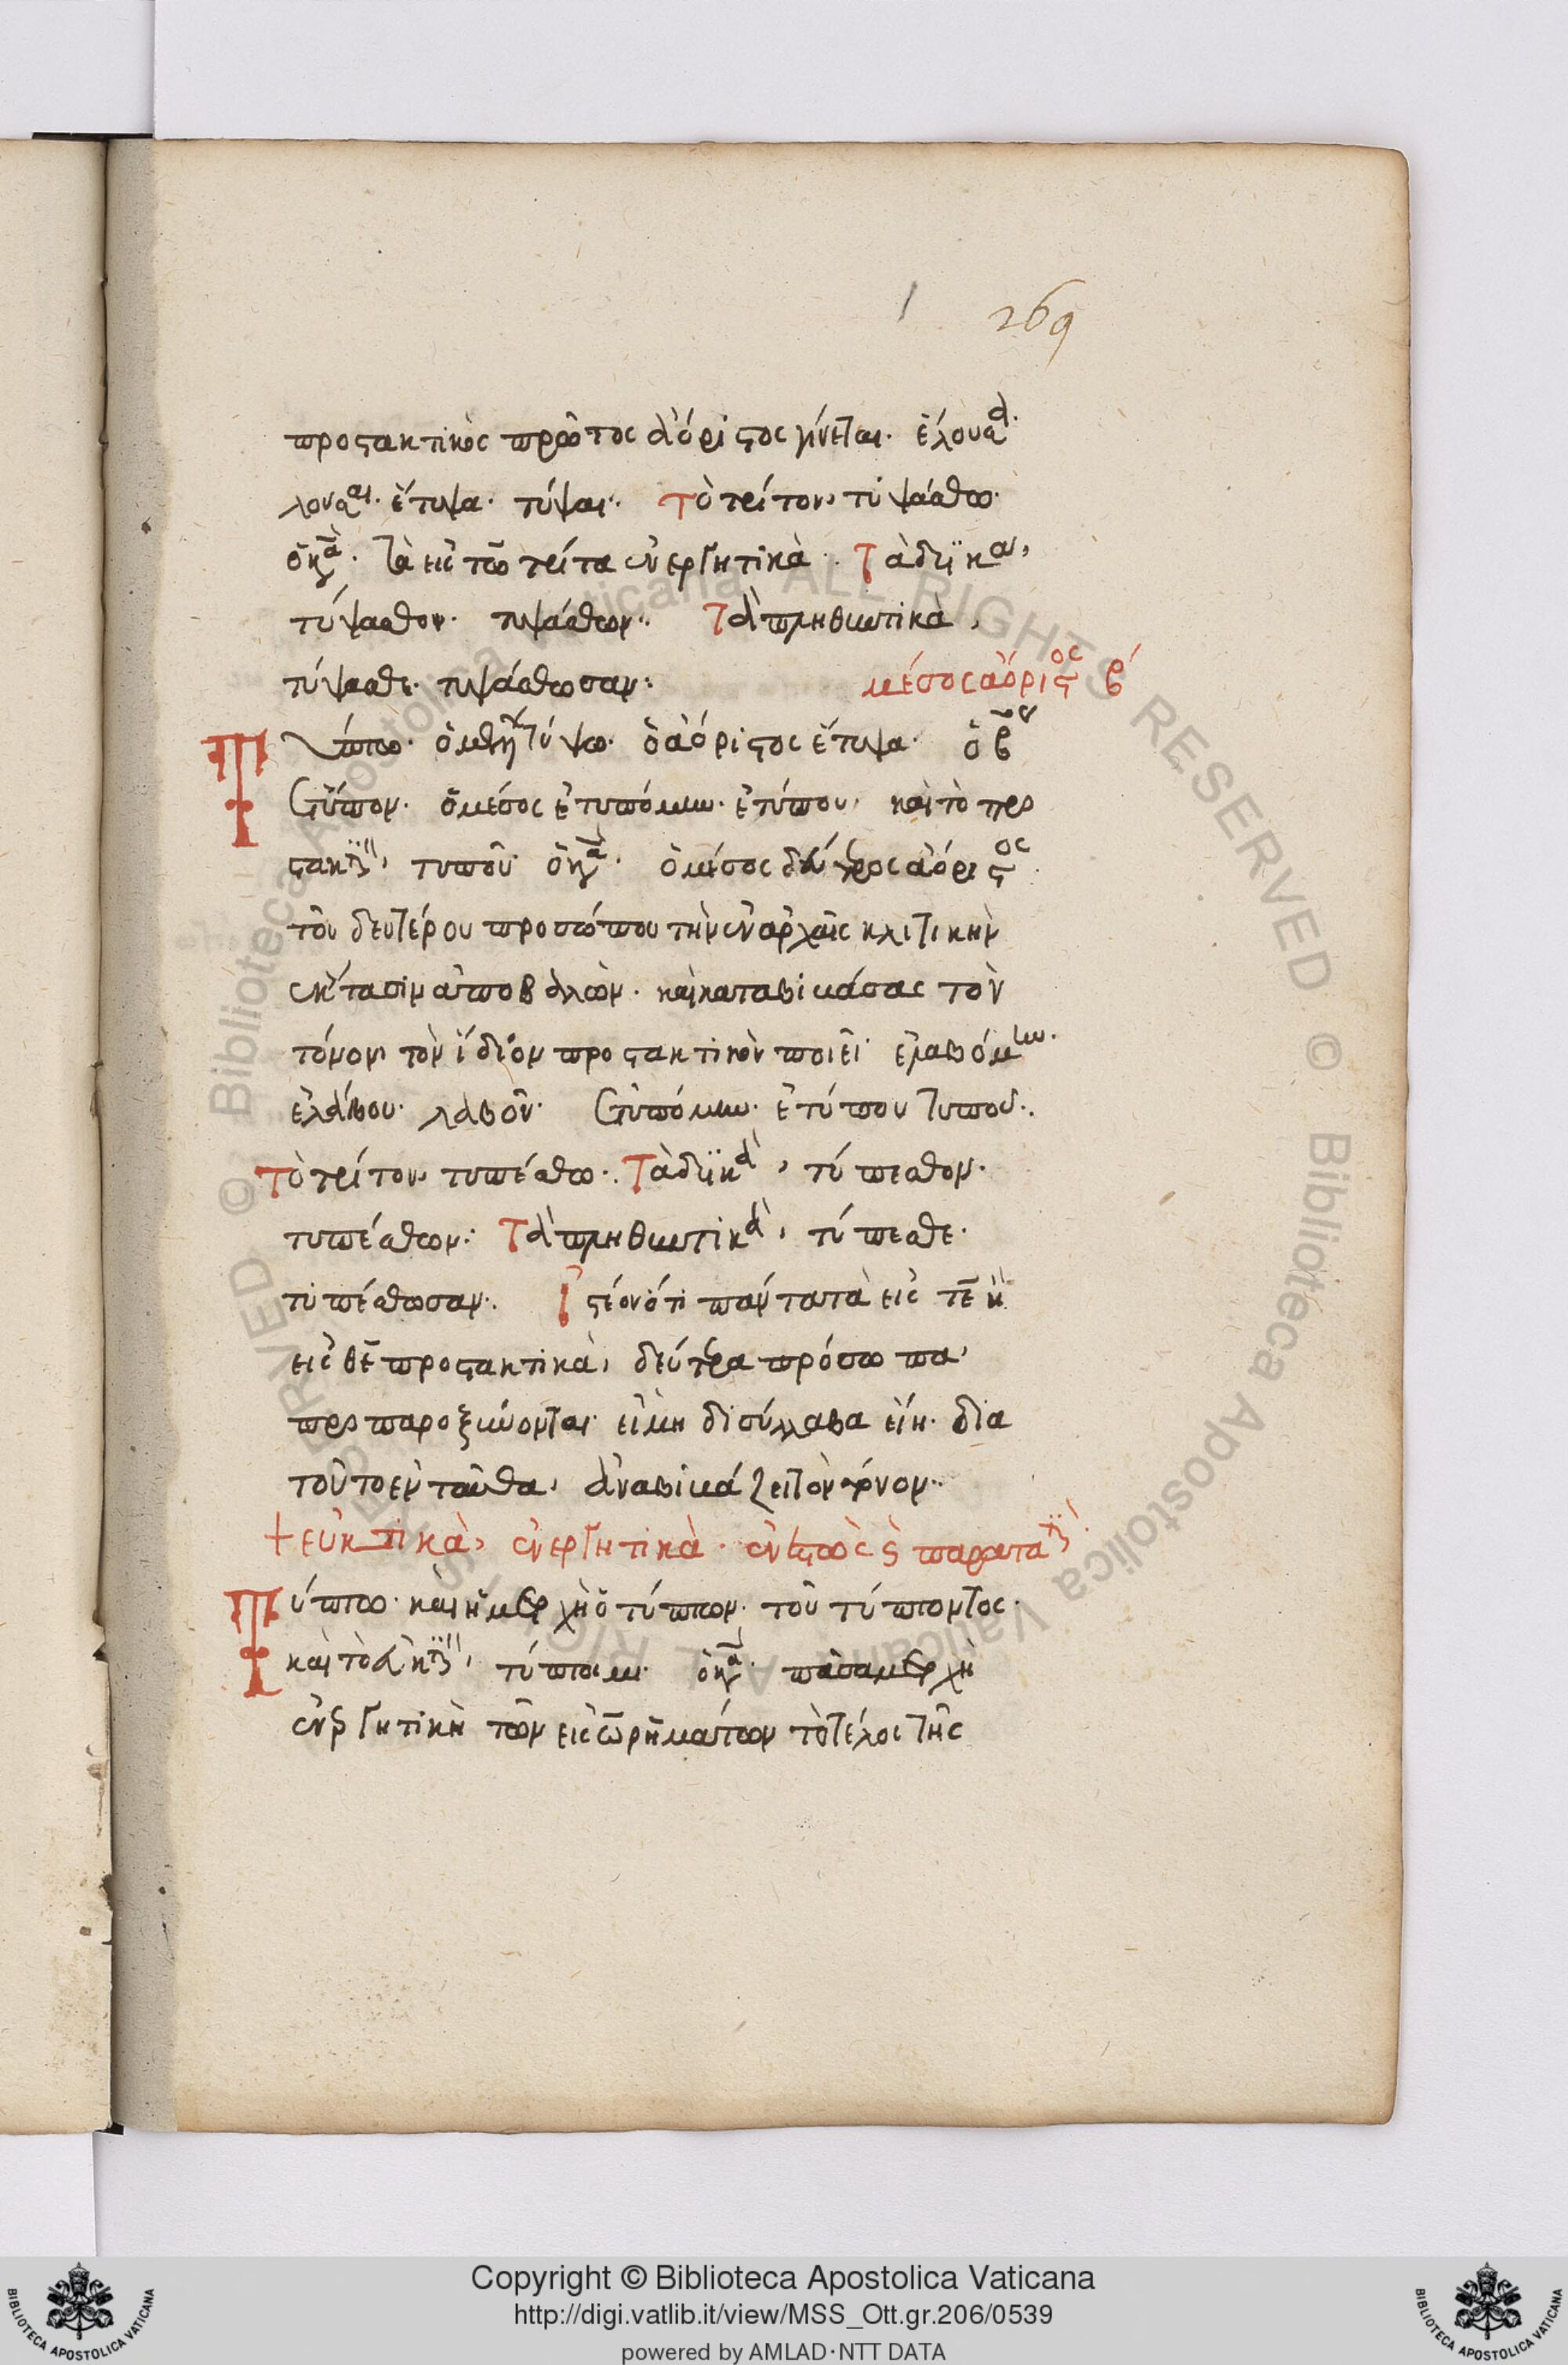 269
προστακτικὸς πρῶτος ἀόριστος γίνεται. ἔλουσα
λοῦσαι. ἔτυψα. τύψαι. Τὸ τρίτον, τυψάσθω.
Τὰ εἰς τω τρίτα ἐνεργητικὰ. Τὰ δυϊκα,
τύψασθον. τυψάσθων. Τὰ πληθυντικὰ,
τύψασθε. τυψάσθωσαν:
μέσος ἀόριστος β΄
Τύπτω. ὁ μέλλων τύψω. ὁ ἀόριστος ἔτυψα. ὁ β
ἔτυπον. ὁ μέσος ἐτυπόμην. ἐτύπου, καὶ τὸ προ
στακτικὸν, τυποῦ. ὁ μέσος δεύτερος ἀόριστος
τοῦ δευτέρου προσώπου τὴν ἐν ἀρχαῖς κλιτικὴν
ἔκτασιν ἀποβαλὼν. καὶ καταβιβάσας τὸν
τόνον, τὸν ἴδιον προστακτικὸν ποιεῖ. ἐλαβόμην.
ἐλάβου. λαβοῦ. ἐτυπόμην. ἐτύπου τυποῦ.
Τὸ τρίτον, τυπέσθω. Τὰ δυϊκὰ, τύπεσθον.
τυπέσθων: Τὰ πληθυντικὰ, τύπεσθε.
τυπέσθωσαν. Ἰστέον ὅτι πάντα τὰ εἰς τε κ
εἰς θε προστακτικὰ, δεύτερα πρόσωπα,
προπαροξύνονται. εἰ μὴ δισύλλαβα εἴη. δια
τοῦτο ἐνταῦθα, ἀναβιβάζει τὸν τόνον.
+ εὐκτικὰ, ἐνεργητικὰ. ἐνεστὼς ϗ παρατατικός.
Τύπτω. καὶ ἡ μετοχὴ ὁ τύπτων. τοῦ τύπτοντος.
καὶ τὸ εὐκτικὸν, τύπτοιμι. πᾶσα μετοχὴ
ἐνεργητικὴ τῶν εἰς ω ρημάτων τὸ τέλος τῆς
© Biblioteca Apostolica Vaticana ALL RIGHTS RESERVED © Biblioteca Apostolica Vaticana ALL RIGHTS RESERVED
Copyright © Biblioteca Apostolica Vaticana
http://digi.vatlib.it/view/MSS_Ott.gr.206/0539
powered by AMLAD·NTT DATA
BIBLIOTECA APOSTOLICA VATICANA
BIBLIOTECA APOSTOLICA VATICANA